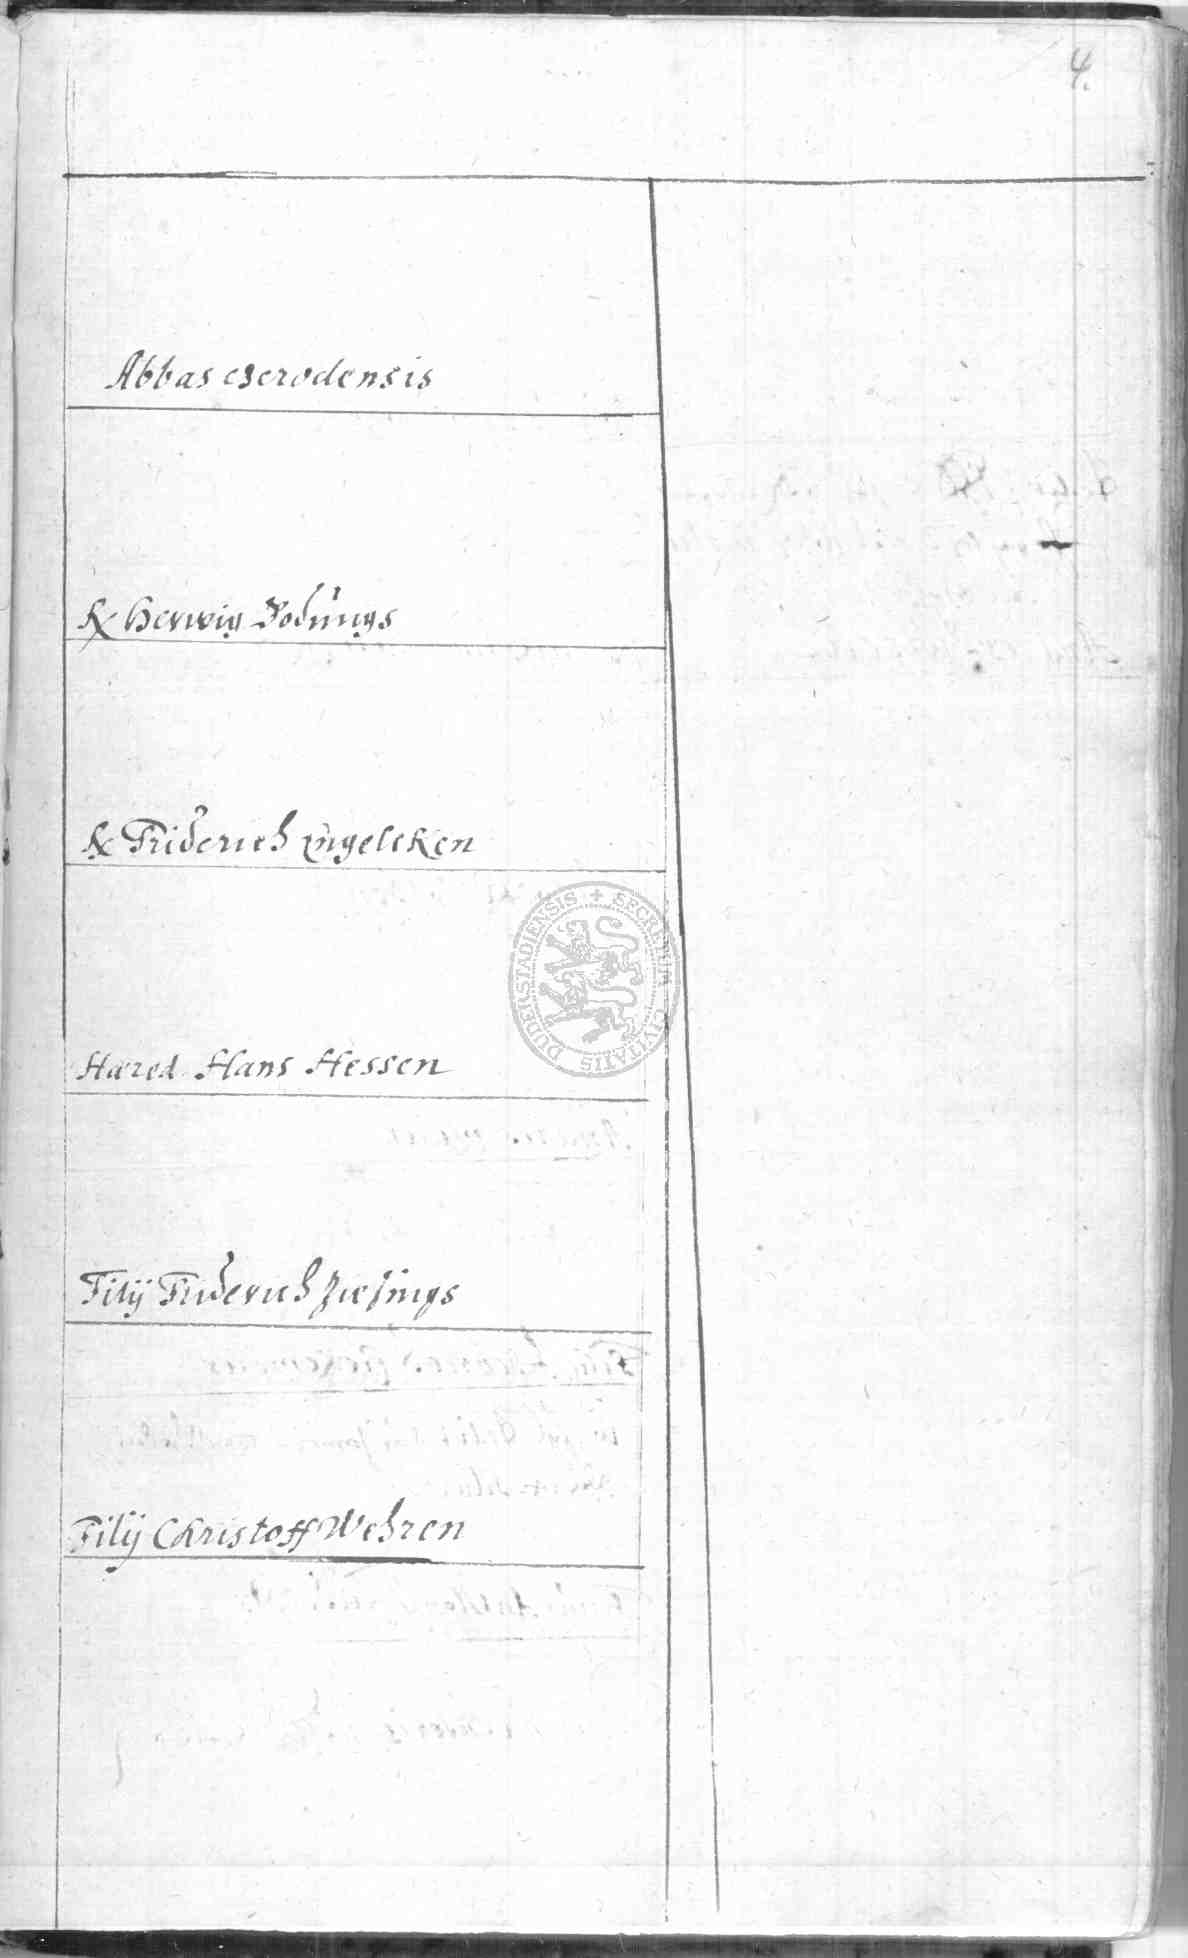 4.
Abbas Gerodensis
Herwig Bodungs
Friderich Engelcken
Hæred Hans Hessen
Filij Friderich
Filij Christoff Wehren
SECRETUM CIVITATIS DUDERSTADIENSIS